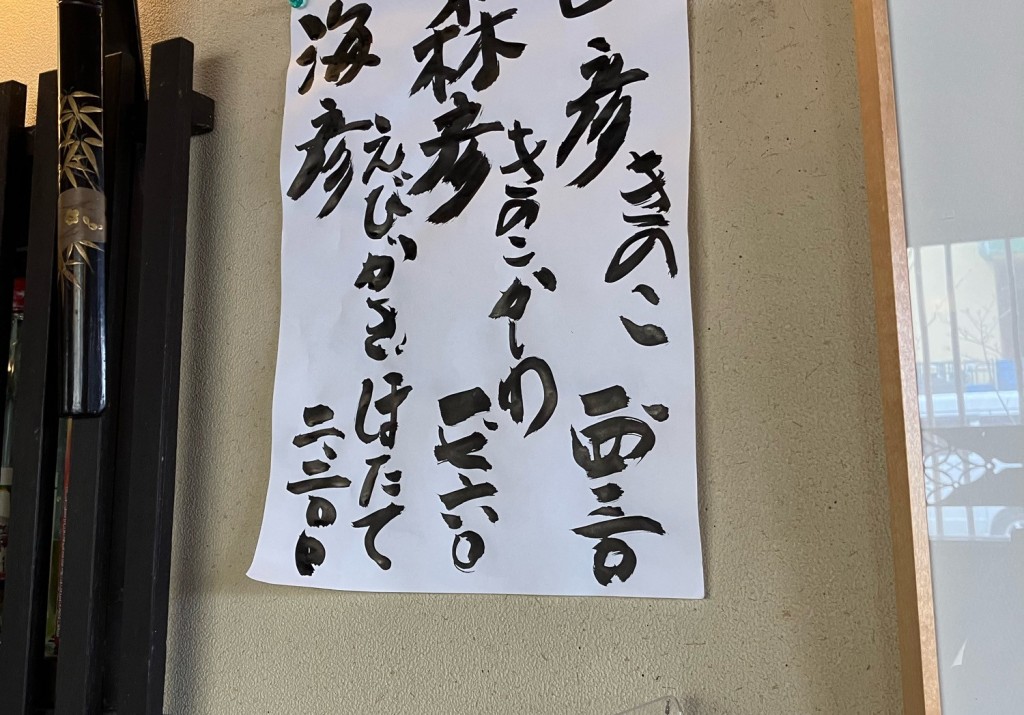 彦
きのこ
一、四三〇
森彦
きのこかしわ
一、七六〇
海彦
えびかきほたて
二、三〇〇